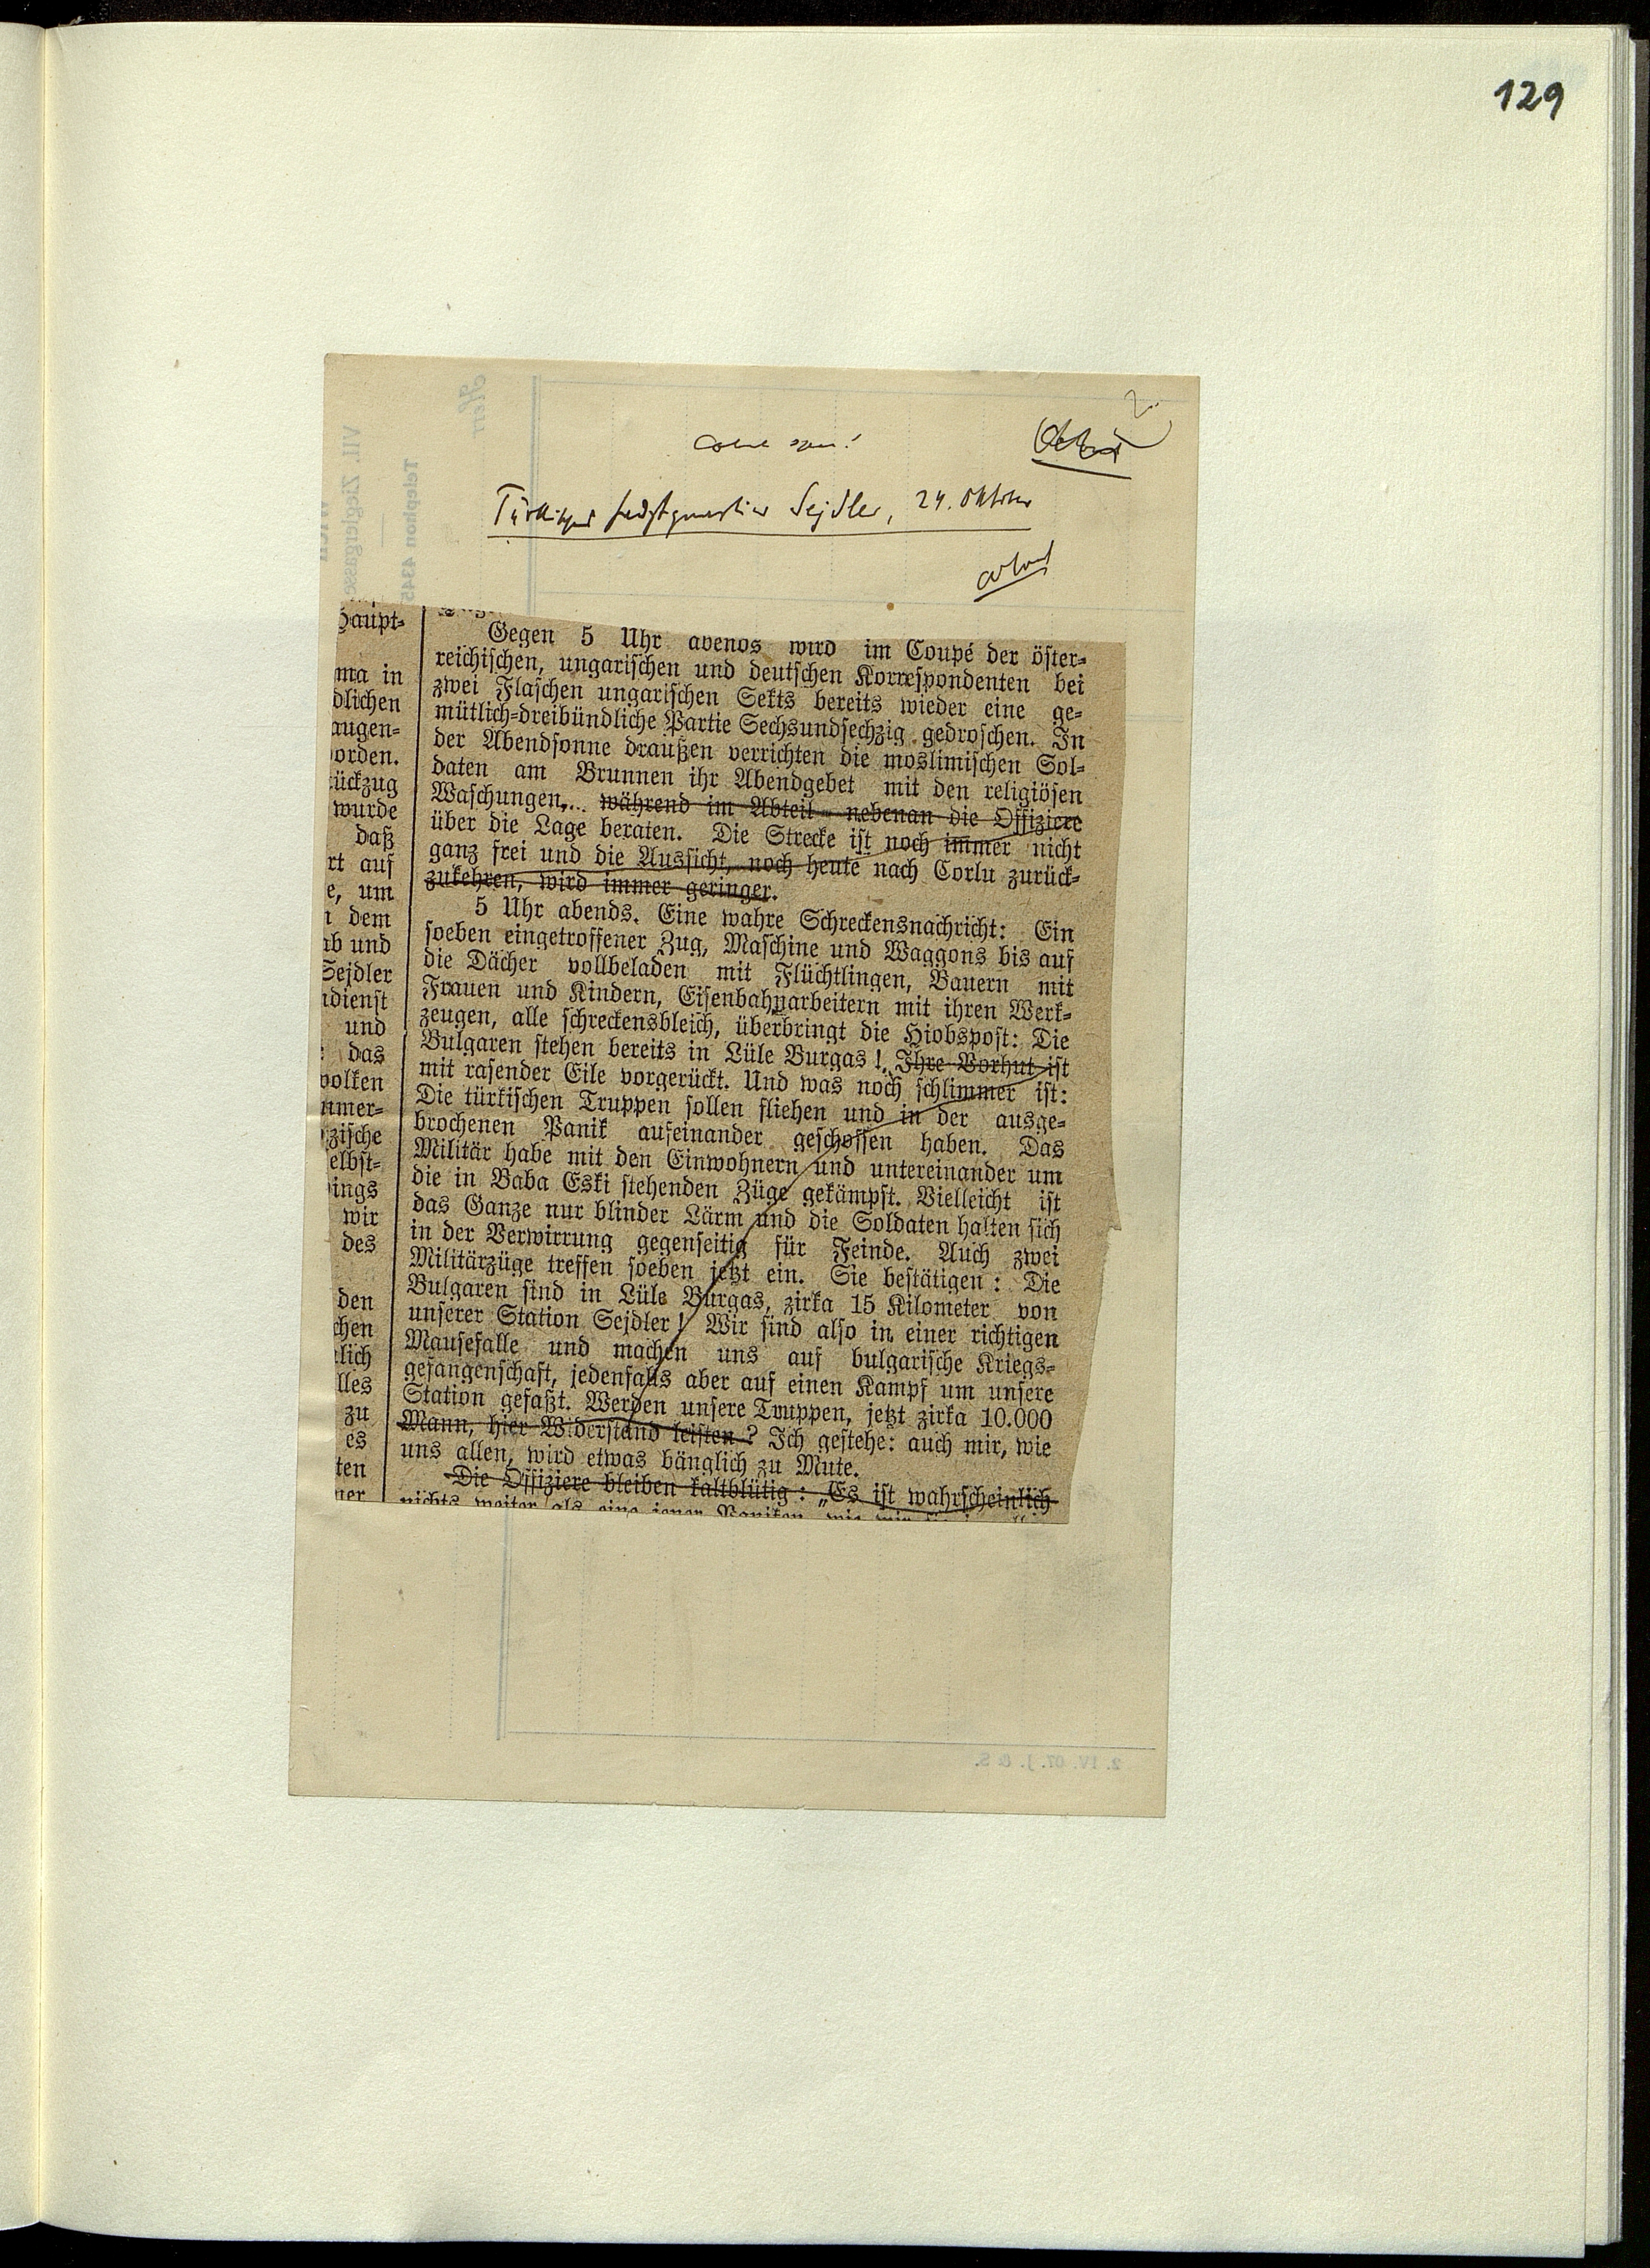 129
Türkisches Hauptquartier Sejdler, 24. Oktober
Herr
VII. Zieglergasse
Telephon 4345
Haupt-
ma in
dlichen
augen-
orden.
ückzug
wurde
daß
rt auf
e, um
n dem
ab und
Sejdler
ndienst
und
das
wolken
mmer-
zische
elbst-
dings
wir
des
den
chen
lich
lles
zu
es
ten
ner
Gegen 5 Uhr abends wird im Coupé der öster-
reichischen, ungarischen und deutschen Korrespondenten bei
zwei Flaschen ungarischen Sekts bereits wieder eine ge-
mütlich-dreibündliche Partie Sechsundsechzig gedroschen. In
der Abendsonne draußen verrichten die moslimischen Sol-
daten am Brunnen ihr Abendgebet mit den religiösen
Waschungen... während im Abteil nebenan die Offiziere
über die Lage beraten. Die Strecke ist noch immer nicht
ganz frei und die Aussicht, noch heute nach Corlu zurück-
zukehren, wird immer geringer.
5 Uhr abends. Eine wahre Schreckensnachricht: Ein
soeben eingetroffener Zug, Maschine und Waggons bis auf
die Dächer vollbeladen mit Flüchtlingen, Bauern mit
Frauen und Kindern, Eisenbahnarbeitern mit ihren Werk-
zeugen, alle schreckensbleich, überbringt die Hiobspost: Die
Bulgaren stehen bereits in Lüle Burgas! Ihre Vorhut ist
mit rasender Eile vorgerückt. Und was noch schlimmer ist:
Die türkischen Truppen sollen fliehen und in der ausge-
brochenen Panik aufeinander geschossen haben. Das
Militär habe mit den Einwohnern und untereinander um
die in Baba Eski stehenden Züge gekämpft. Vielleicht ist
das Ganze nur blinder Lärm und die Soldaten halten sich
in der Verwirrung gegenseitig für Feinde. Auch zwei
Militärzüge treffen soeben jetzt ein. Sie bestätigen: Die
Bulgaren sind in Lüle Burgas, zirka 15 Kilometer von
unserer Station Sejdler! Wir sind also in einer richtigen
Mausefalle und machen uns auf bulgarische Kriegs-
gefangenschaft, jedenfalls aber auf einen Kampf um unsere
Station gefaßt. Werden unsere Truppen, jetzt zirka 10.000
Mann, hier Widerstand leisten? Ich gestehe: auch mir, wie
uns allen, wird etwas bänglich zu Mute.
Die Offiziere bleiben kaltblütig: „Es ist wahrscheinlich
nichts weiter als eine jener Paniken, wie wir
2. IV. 07. J. & S.